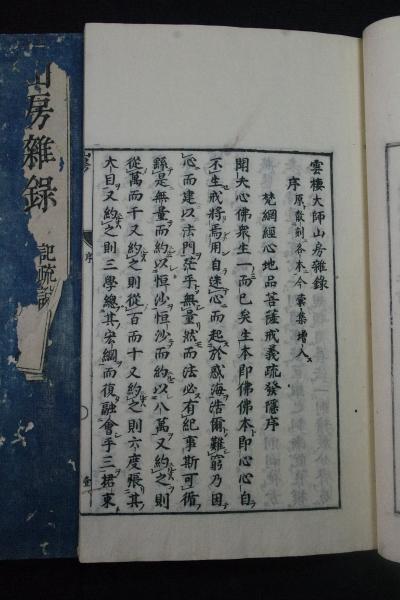 雲棲大師山房雜錄
序 原散刻各本今彙集增入
梵網經心地品菩薩戒義疏發隱序
聞夫心佛衆生一而已矣生本卽佛佛本卽心心自
不生戒將焉用自迷心而起於惑海浩爾難窮乃因
心而建以法門茫乎無量然而法必有紀事斯可循
繇是無量而約以恒沙恒沙而約以八萬又約之則
從萬而千又約之則從百而十又約之則六度張其
大目又約之則三學總其宏綱而復融會乎三捃束
序
壹
山房雜錄
記疏